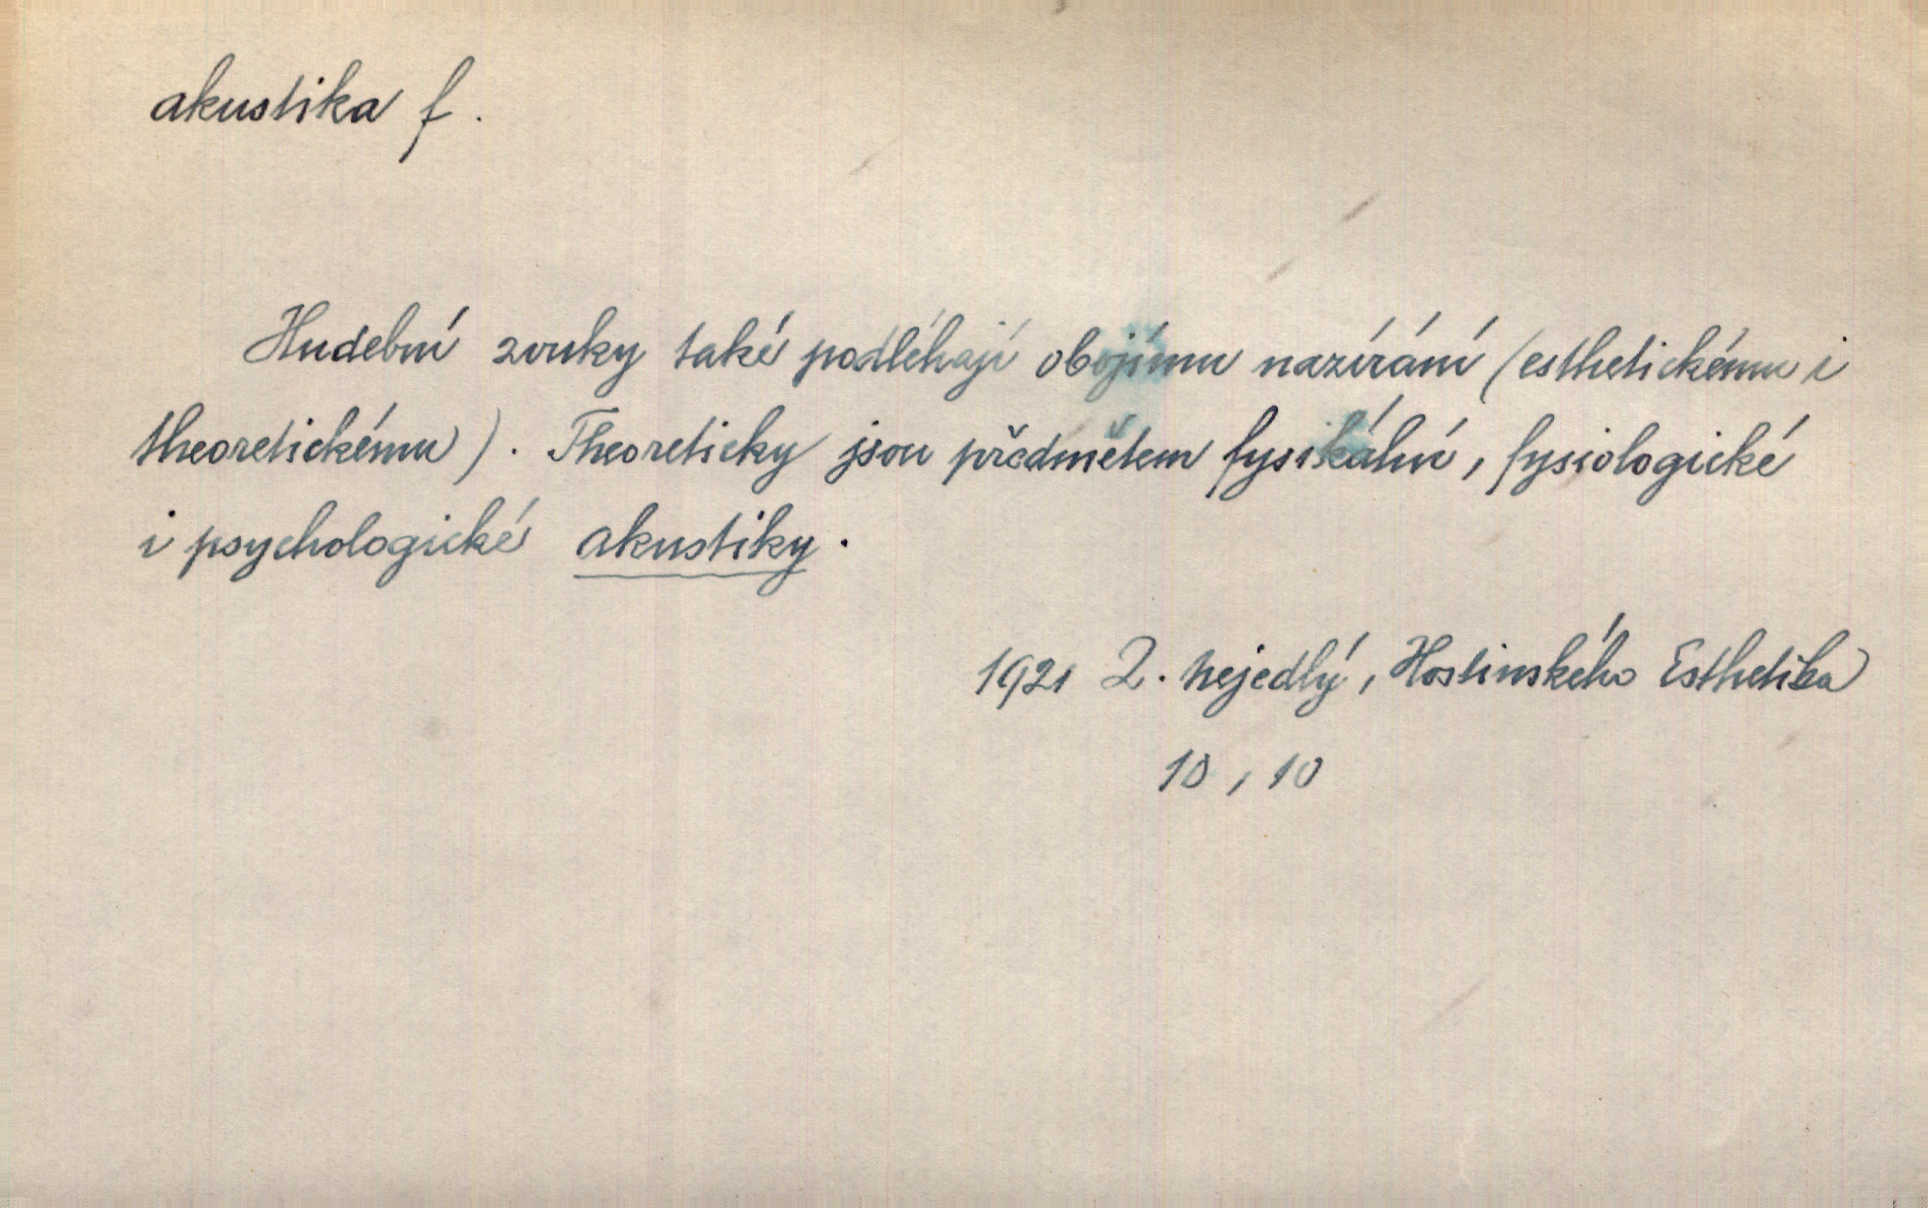 akustika f.
Hudební zvuky také podléhají obojímu nazírání (esthetickému i
theoretickému). Theoreticky jsou předmětem fysikální, fysiologické
i psychologické akustiky.
1921 Z. Nejedlý, Hostinského Esthetika
10, 10